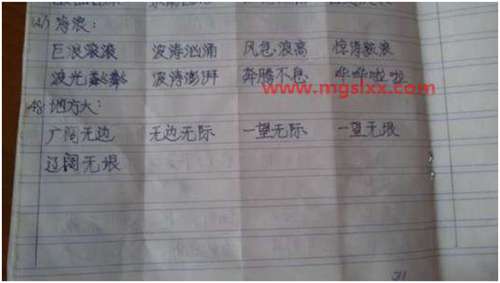 海浪:
巨浪滚滚 波涛汹涌 风急浪高 惊涛骇浪
波光粼粼 波涛澎湃 奔腾不息 哗哗啦啦
www.mgslxx.com
48 地方大:
广阔无边 无边无际 一望无际 一望无垠
辽阔无垠